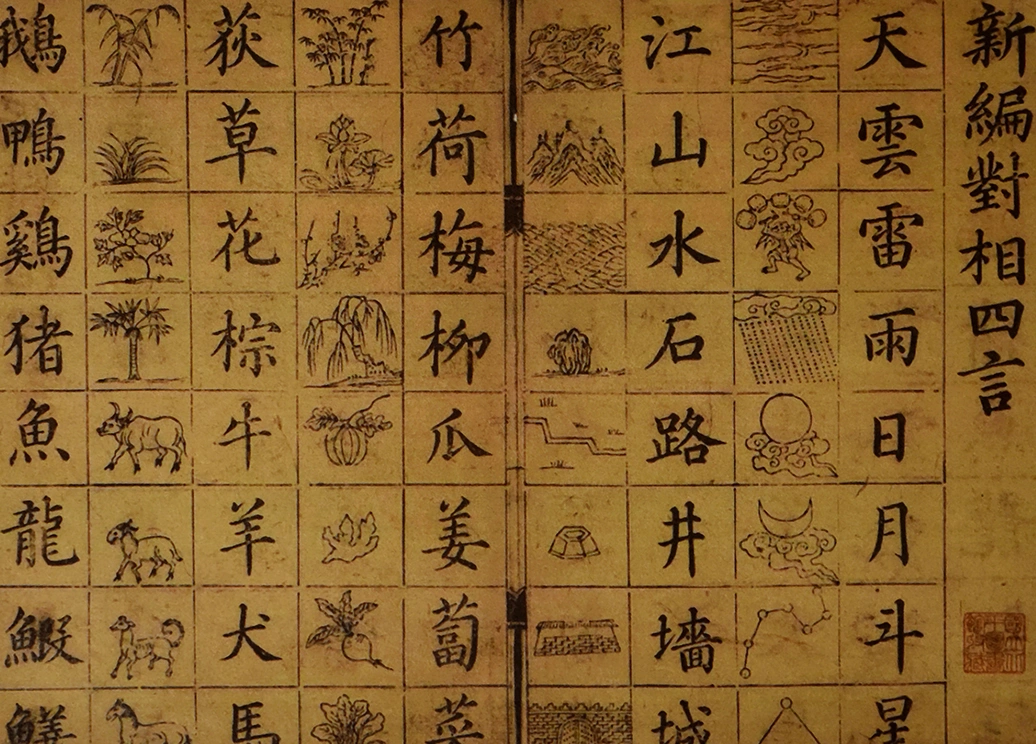 新編對相四言
天雲雷雨日月斗星
江山水石路井墻城
竹荷梅柳瓜姜蔔菜
荻草花棕牛羊犬馬
鵝鴨鷄猪魚龍鰕鱔